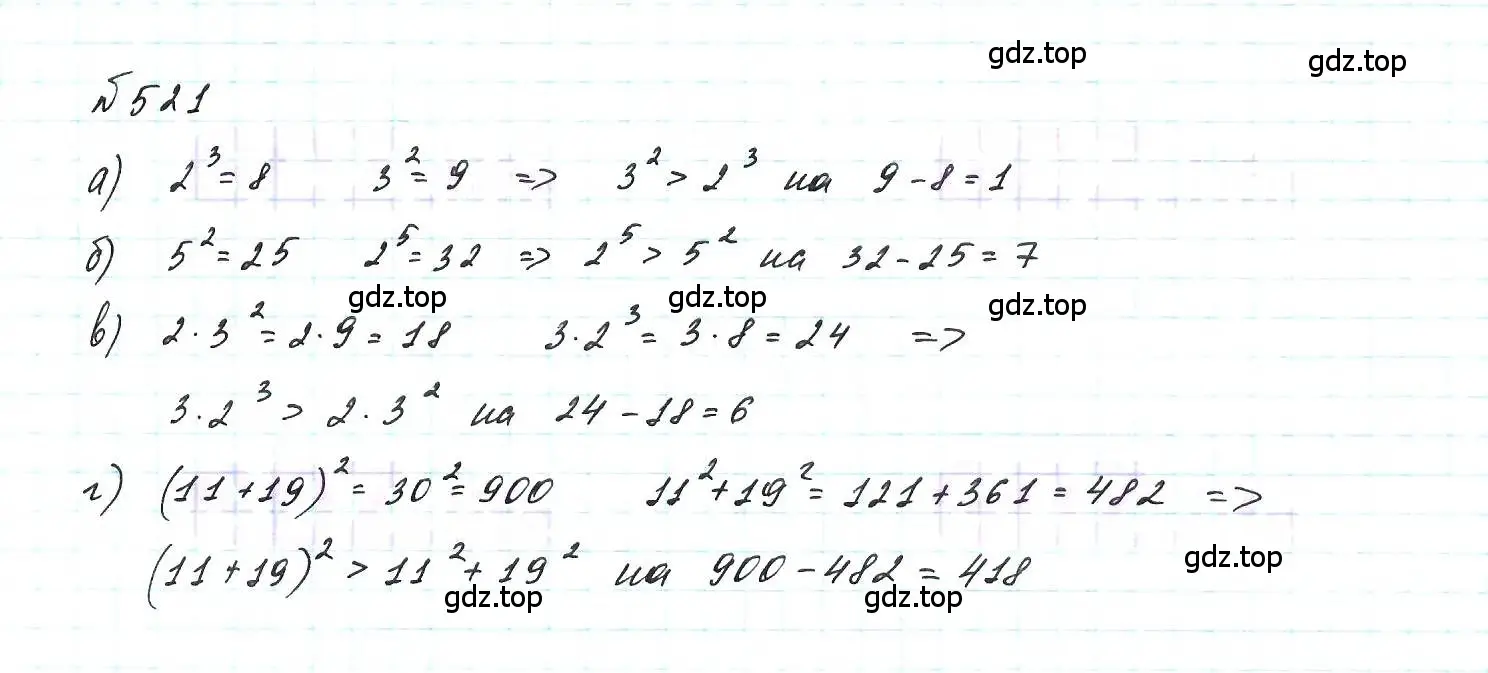 gdz.top
gdz.top
№521
а) 2³ = 8 3² = 9 => 3² > 2³ на 9 - 8 = 1
б) 5² = 25 2⁵ = 32 => 2⁵ > 5² на 32 - 25 = 7
gdz.top gdz.top gdz.top
в) 2 · 3² = 2 · 9 = 18 3 · 2³ = 3 · 8 = 24 =>
3 · 2³ > 2 · 3² на 24 - 18 = 6
г) (11 + 19)² = 30² = 900 11² + 19² = 121 + 361 = 482 =>
gdz.top
(11 + 19)² > 11² + 19² на 900 - 482 = 418
gdz.top gdz.top